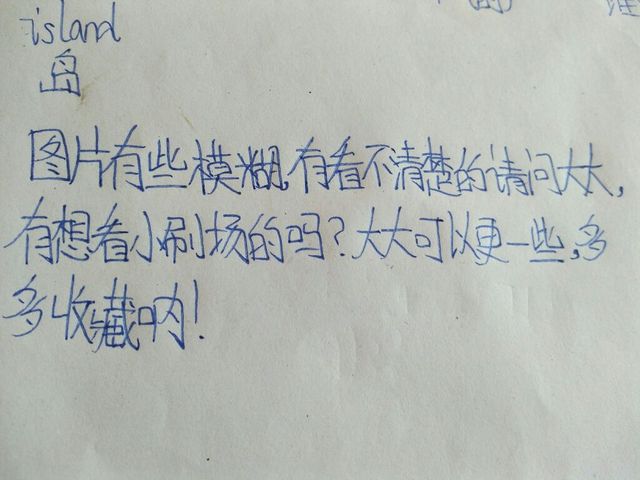 island
岛
图片有些模糊,有看不清楚的请问大大,
有想看小剧场的吗?大大可以更一些,多
多收藏呐!